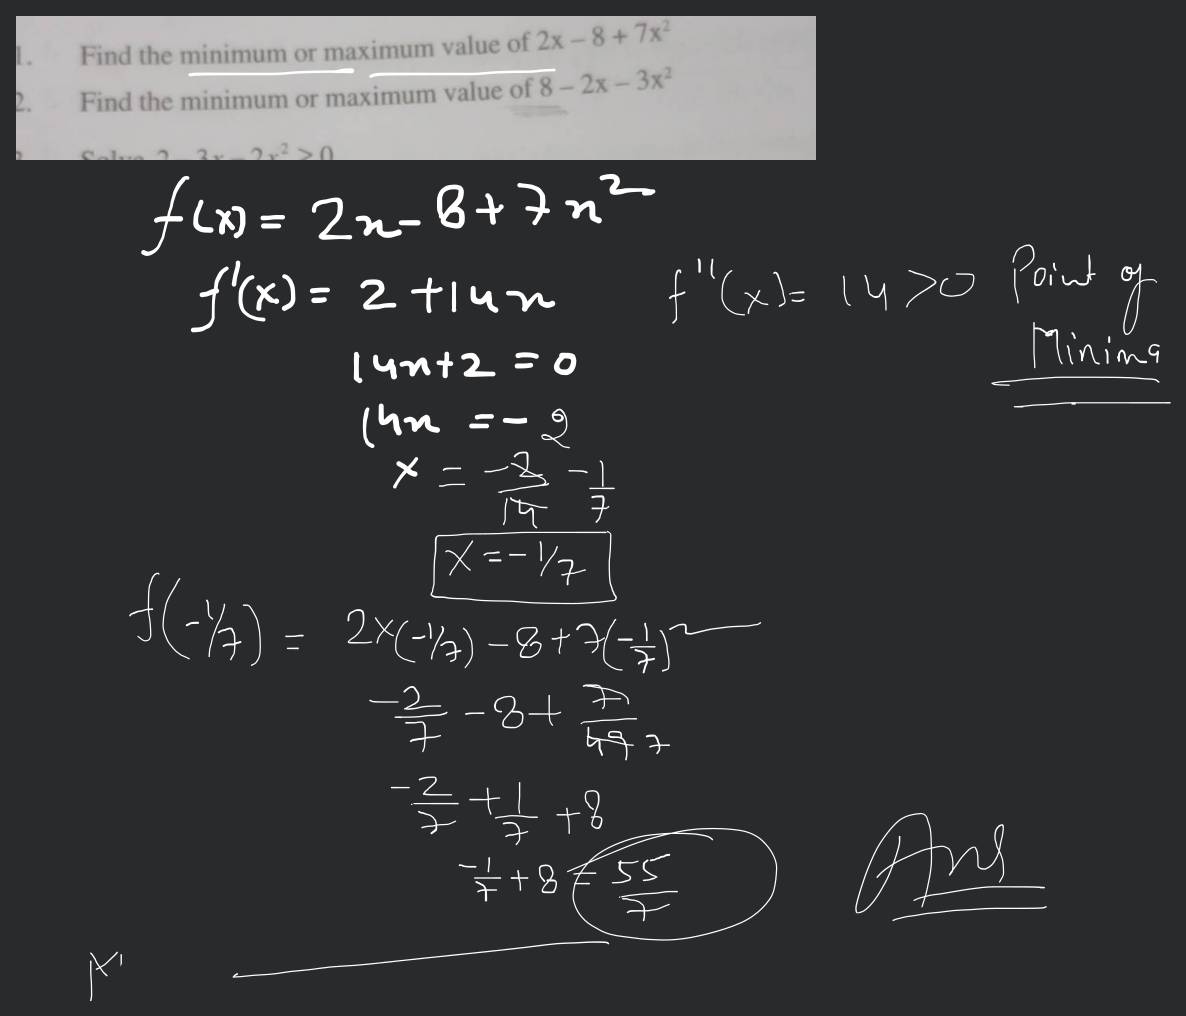 1. Find the minimum or maximum value of 2x – 8 + 7x²
2. Find the minimum or maximum value of 8 – 2x – 3x²
Solve 2 – 3x – 2x² > 0
f(x) = 2x - 8 + 7x²
f'(x) = 2 + 14x
f''(x) = 14 > 0 Point of Minima
14x + 2 = 0
14x = - 2
x = -2/14 -1/7
x = -1/7
f(-1/7) = 2×(-1/7) - 8 + 7(-1/7)²
-2/7 - 8 + 7/49 7
-2/7 + 1/7 + 8
-1/7 + 8 = 55/7 Ans